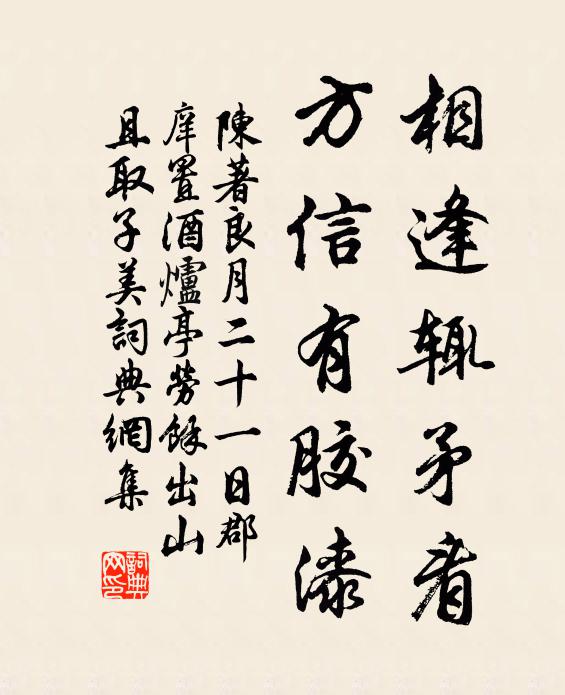 相逢辄矛者
方信有胶漆
陳著良月二十一日郡
庠置酒爐亭勞餘出山
且取子美詞典網集
詞典網印